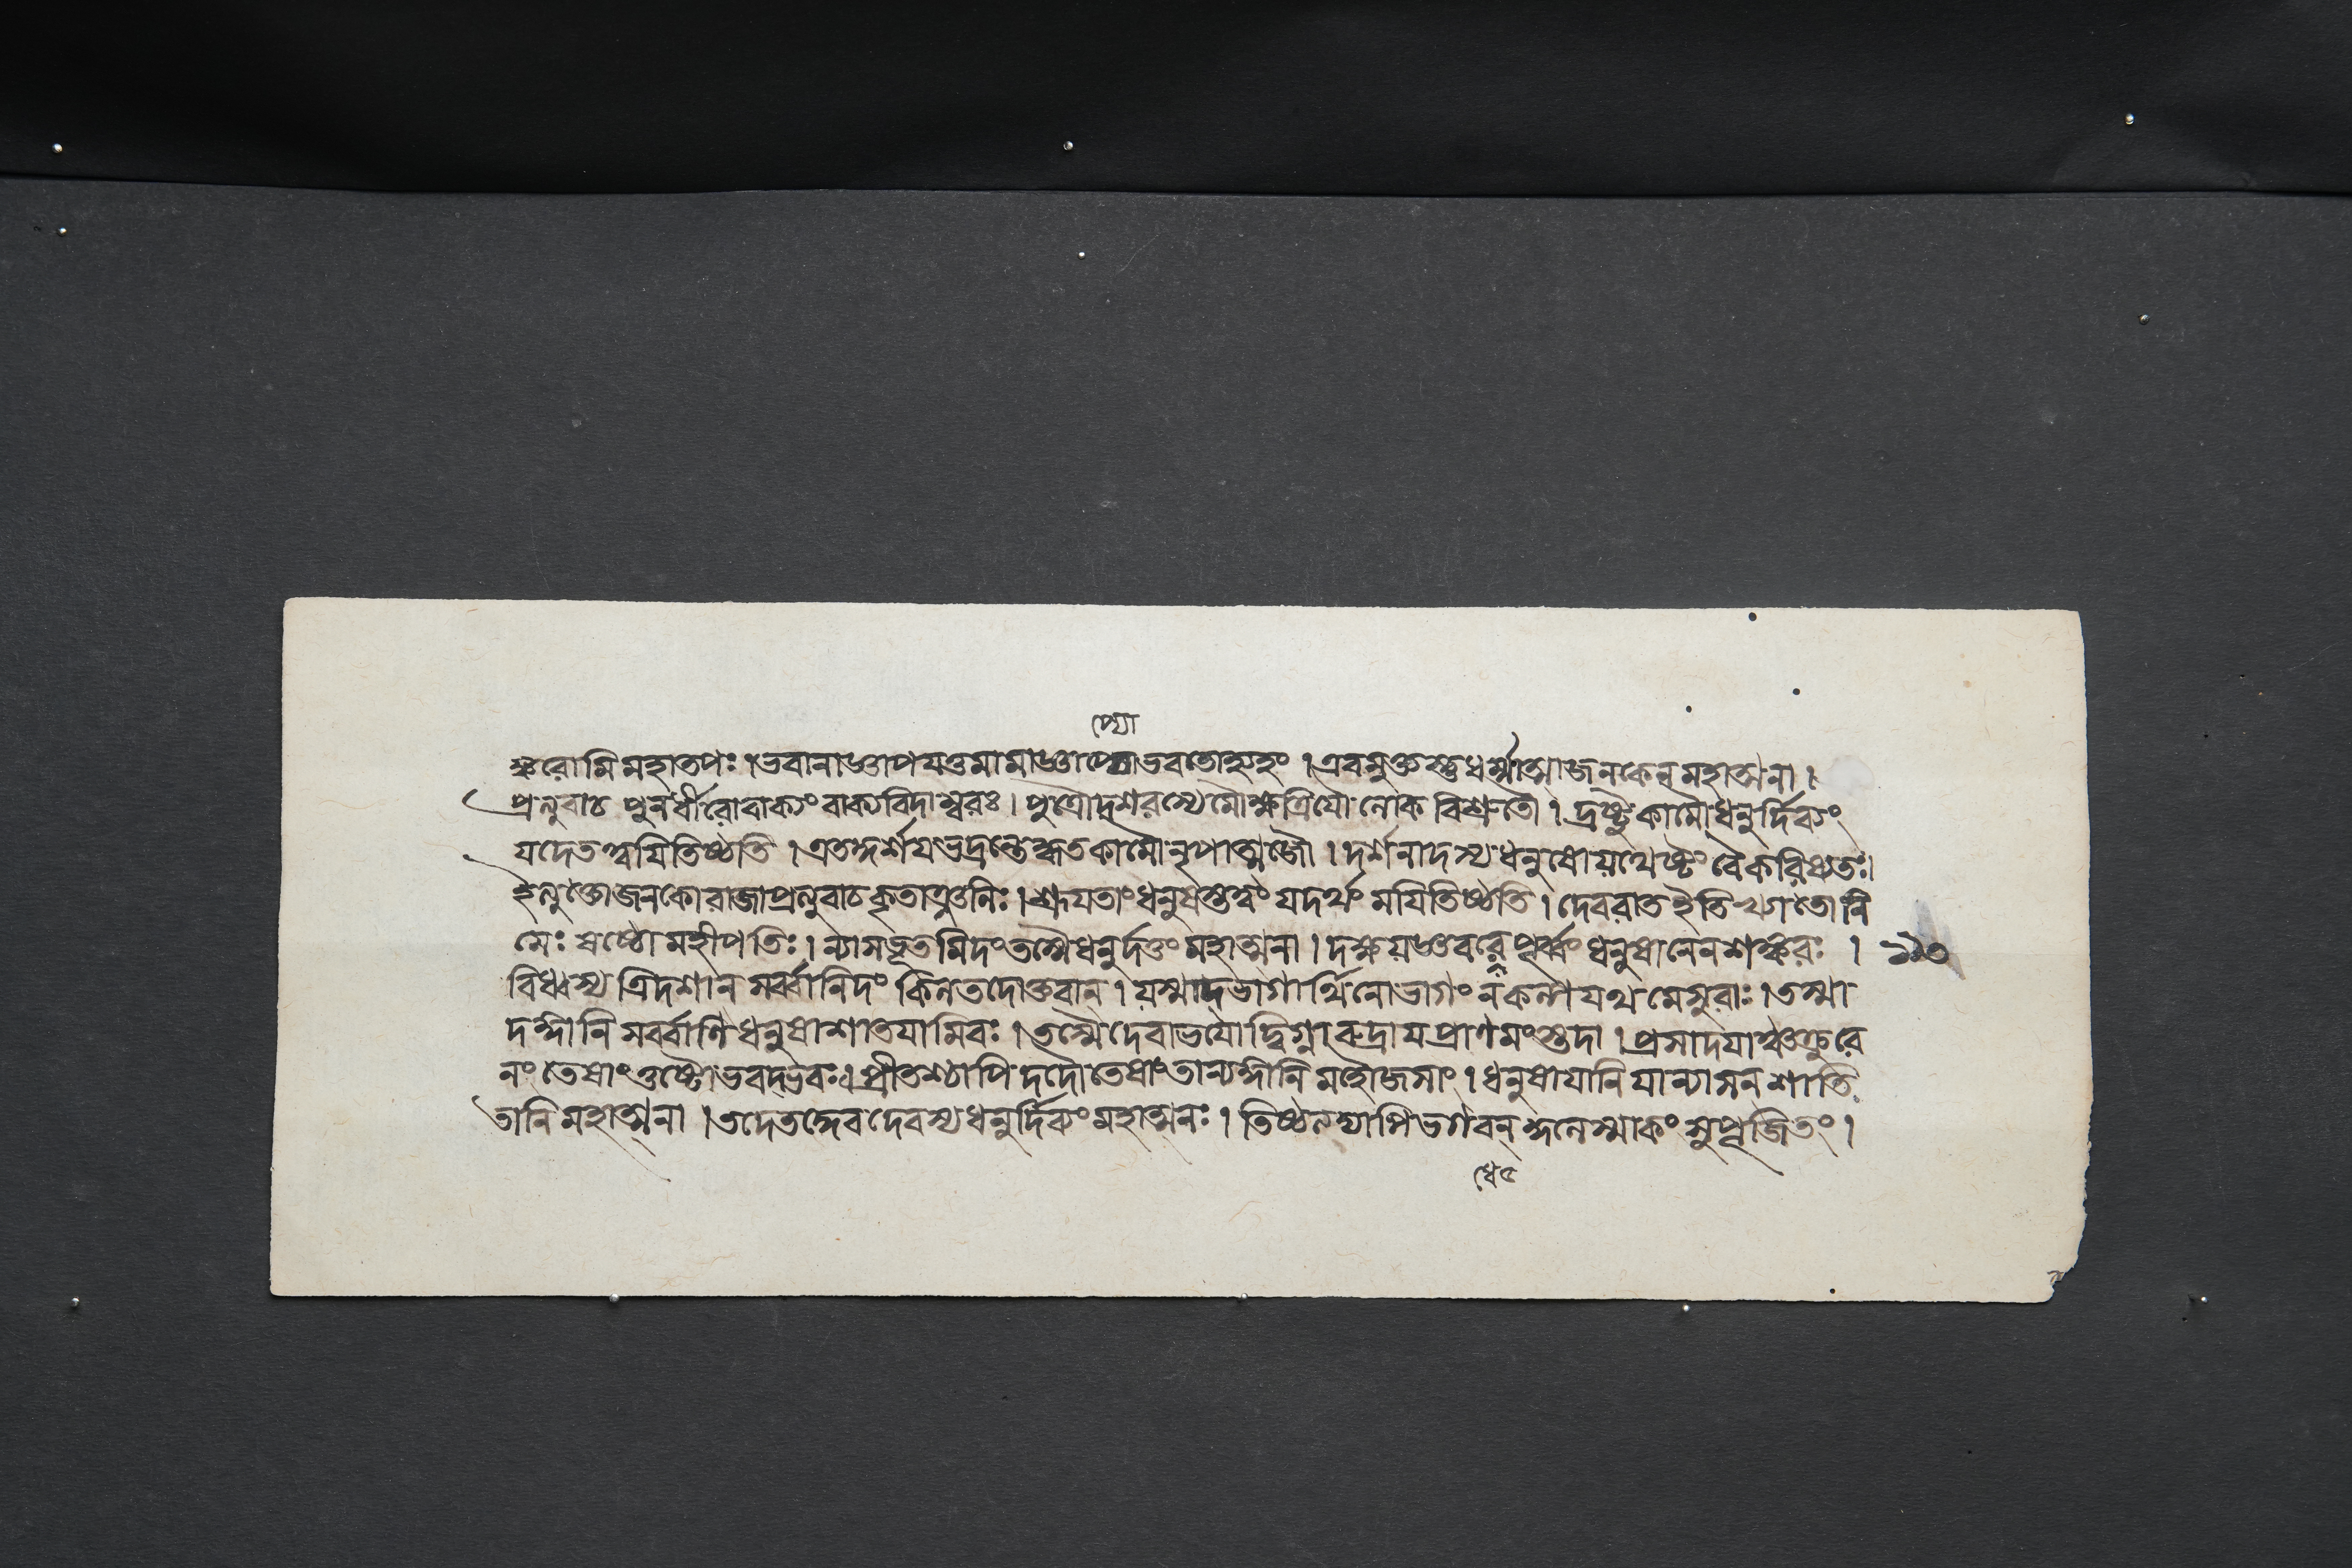 প্যো
ঙ্করোমি মহাতপঃ । ভবানাজ্ঞাপযতুমামাজ্ঞাপ্যোভবতোহ্যহং । এবমুক্তস্তুধর্ম্মাত্মাজনকেনমহাত্মনা ।
প্রত্যুবাচ পুনর্বীরোবাক্যংবাক্যবিদাম্বরঃ । পুত্রৌদশরথস্যেমৌক্ষত্রিযৌ লোক বিশ্রুতৌ । দ্রষ্টুকামৌধনুর্দিব্যং
যদেতত্ত্বযিতিষ্ঠতি । এতদ্দর্শযভদ্রন্তেকৃতকামৌনৃপাত্মজৌ । দর্শনাদস্যধনুষোযথেষ্টং বৈকরিষ্যতঃ।
ইত্যুক্তোজনকোরাজাপ্রত্যুবাচকৃতাঞ্জলিঃ । শ্রূযতাংধনুষস্তত্ত্বং যদর্থং মযিতিষ্ঠতি । দেবরাত ইতি খ্যাতো নি
মেঃ ষষ্ঠো মহীপতিঃ । ন্যাসভূতমিদংতস্মৈধনুর্দত্তং মহাত্মনা । দক্ষযজ্ঞবধে পূর্ব্বং ধনুষানেনশঙ্করঃ । ১১৩
বিধ্বস্য ত্রিদশান্ সর্ব্বানিদং কিলতদোক্তবান্ । যস্মাদ্ভাগার্থিনোভাগং নকল্পযথ মেসুরাঃ । তস্মা
দঙ্গানি সর্ব্বাণিধনুষাশাতযামিবঃ । তস্মৈদেবাভযোদ্বিগ্নারুদ্রাযপ্রাণমংস্তদা । প্রসাদযাঞ্চক্রুরে
নং তেষাংতুষ্টোভবদ্ভবঃ। প্রীতশ্চাপি দদৌতেষাংতান্যঙ্গানি মহৌজসাং । ধনুষাযানি যান্যাসন্ শাতি
তানি মহাত্মনা । তদেতদ্দেবদেবস্যধনুর্দিব্যংমহাত্মনঃ । তিষ্ঠত্যদ্যাপিভগবন্ কুলেস্মাকং সুপূজিতং ।
ধে৫